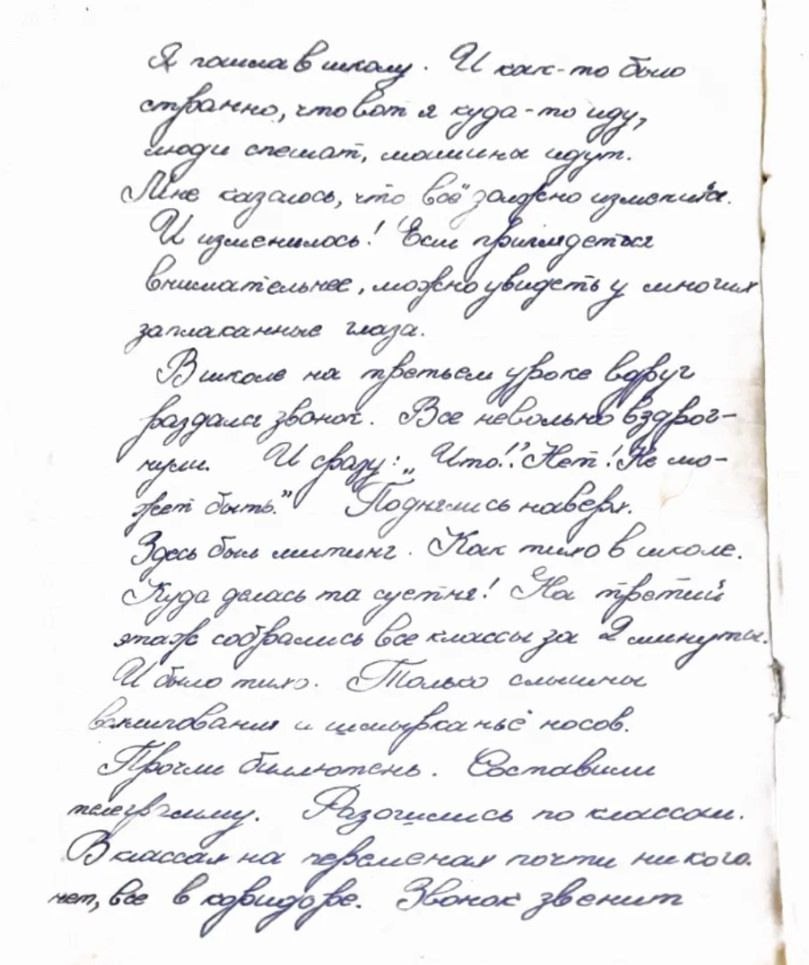 Я пошла в школу. И как-то было
странно, что вот я куда-то иду,
люди спешат, машины идут.
Мне казалось, что всё должно измениться.
И изменилось! Если приглядеться
внимательнее, можно увидеть у многих
заплаканные глаза.
В школе на третьем уроке вдруг
раздался звонок. Все невольно вздрог-
нули. И сразу: „Что!? Нет! Не мо-
жет быть." Поднялись наверх.
Здесь был митинг. Как тихо в школе.
Куда делась та суетня! На третий
этаж собрались все классы за 2 минуты.
И было тихо. Только слышны
всхлипования и шмырканьё носов.
Прочли бюллютень. Составили
телеграмму. Разошлись по классам.
В классах на переменах почти никого
нет, все в коридоре. Звонок звенит